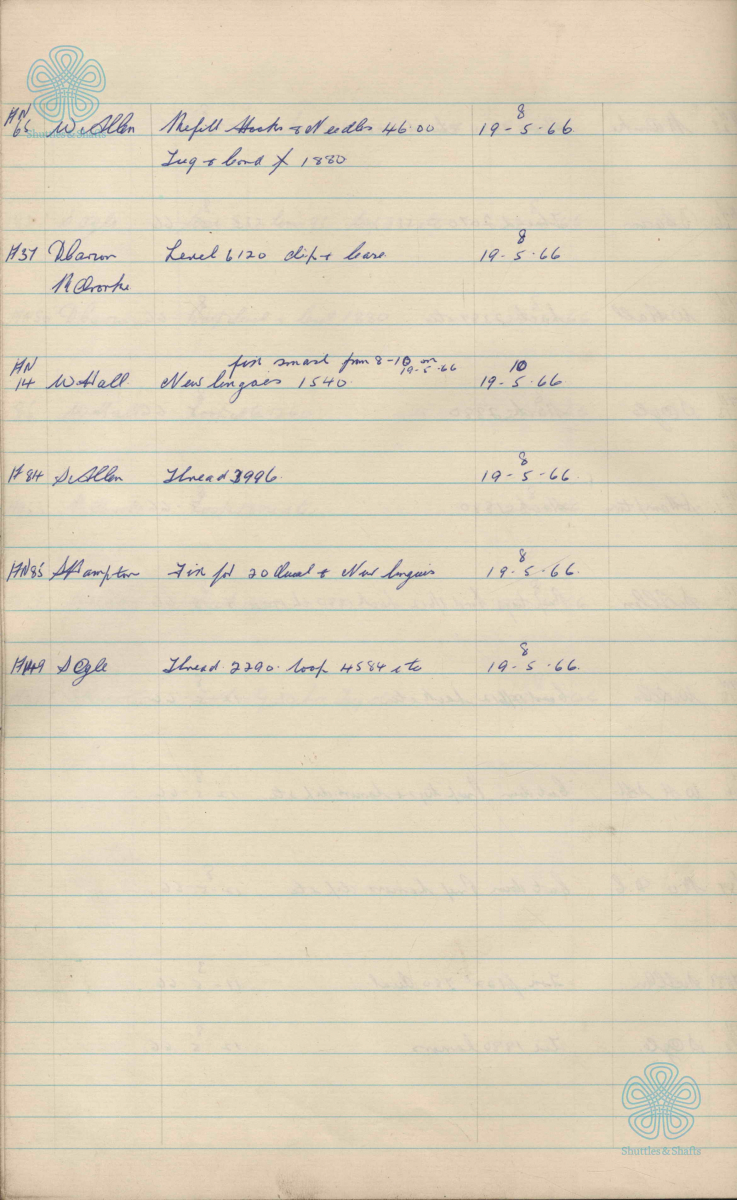 HN 8
65 W Allen Refill Hooks & Needles 46.00 19-5.66
Shuttles & Shafts
Lug & band 1880
8
H37 Level 6120 clip & 19-5.66
R Ororke
HN fix smash from 8-10 on 10
19.5.66
14 W Hall New lingoes 1540. 19-5.66
8
H84 S Allen Thread 3996. 19-5.66.
8
HN85 S Hampton Fix for 20 & New lingoes 19-5.66.
8
H149 S Ogle Thread 2290. loop 4584 etc 19-5.66.
Shuttles & Shafts